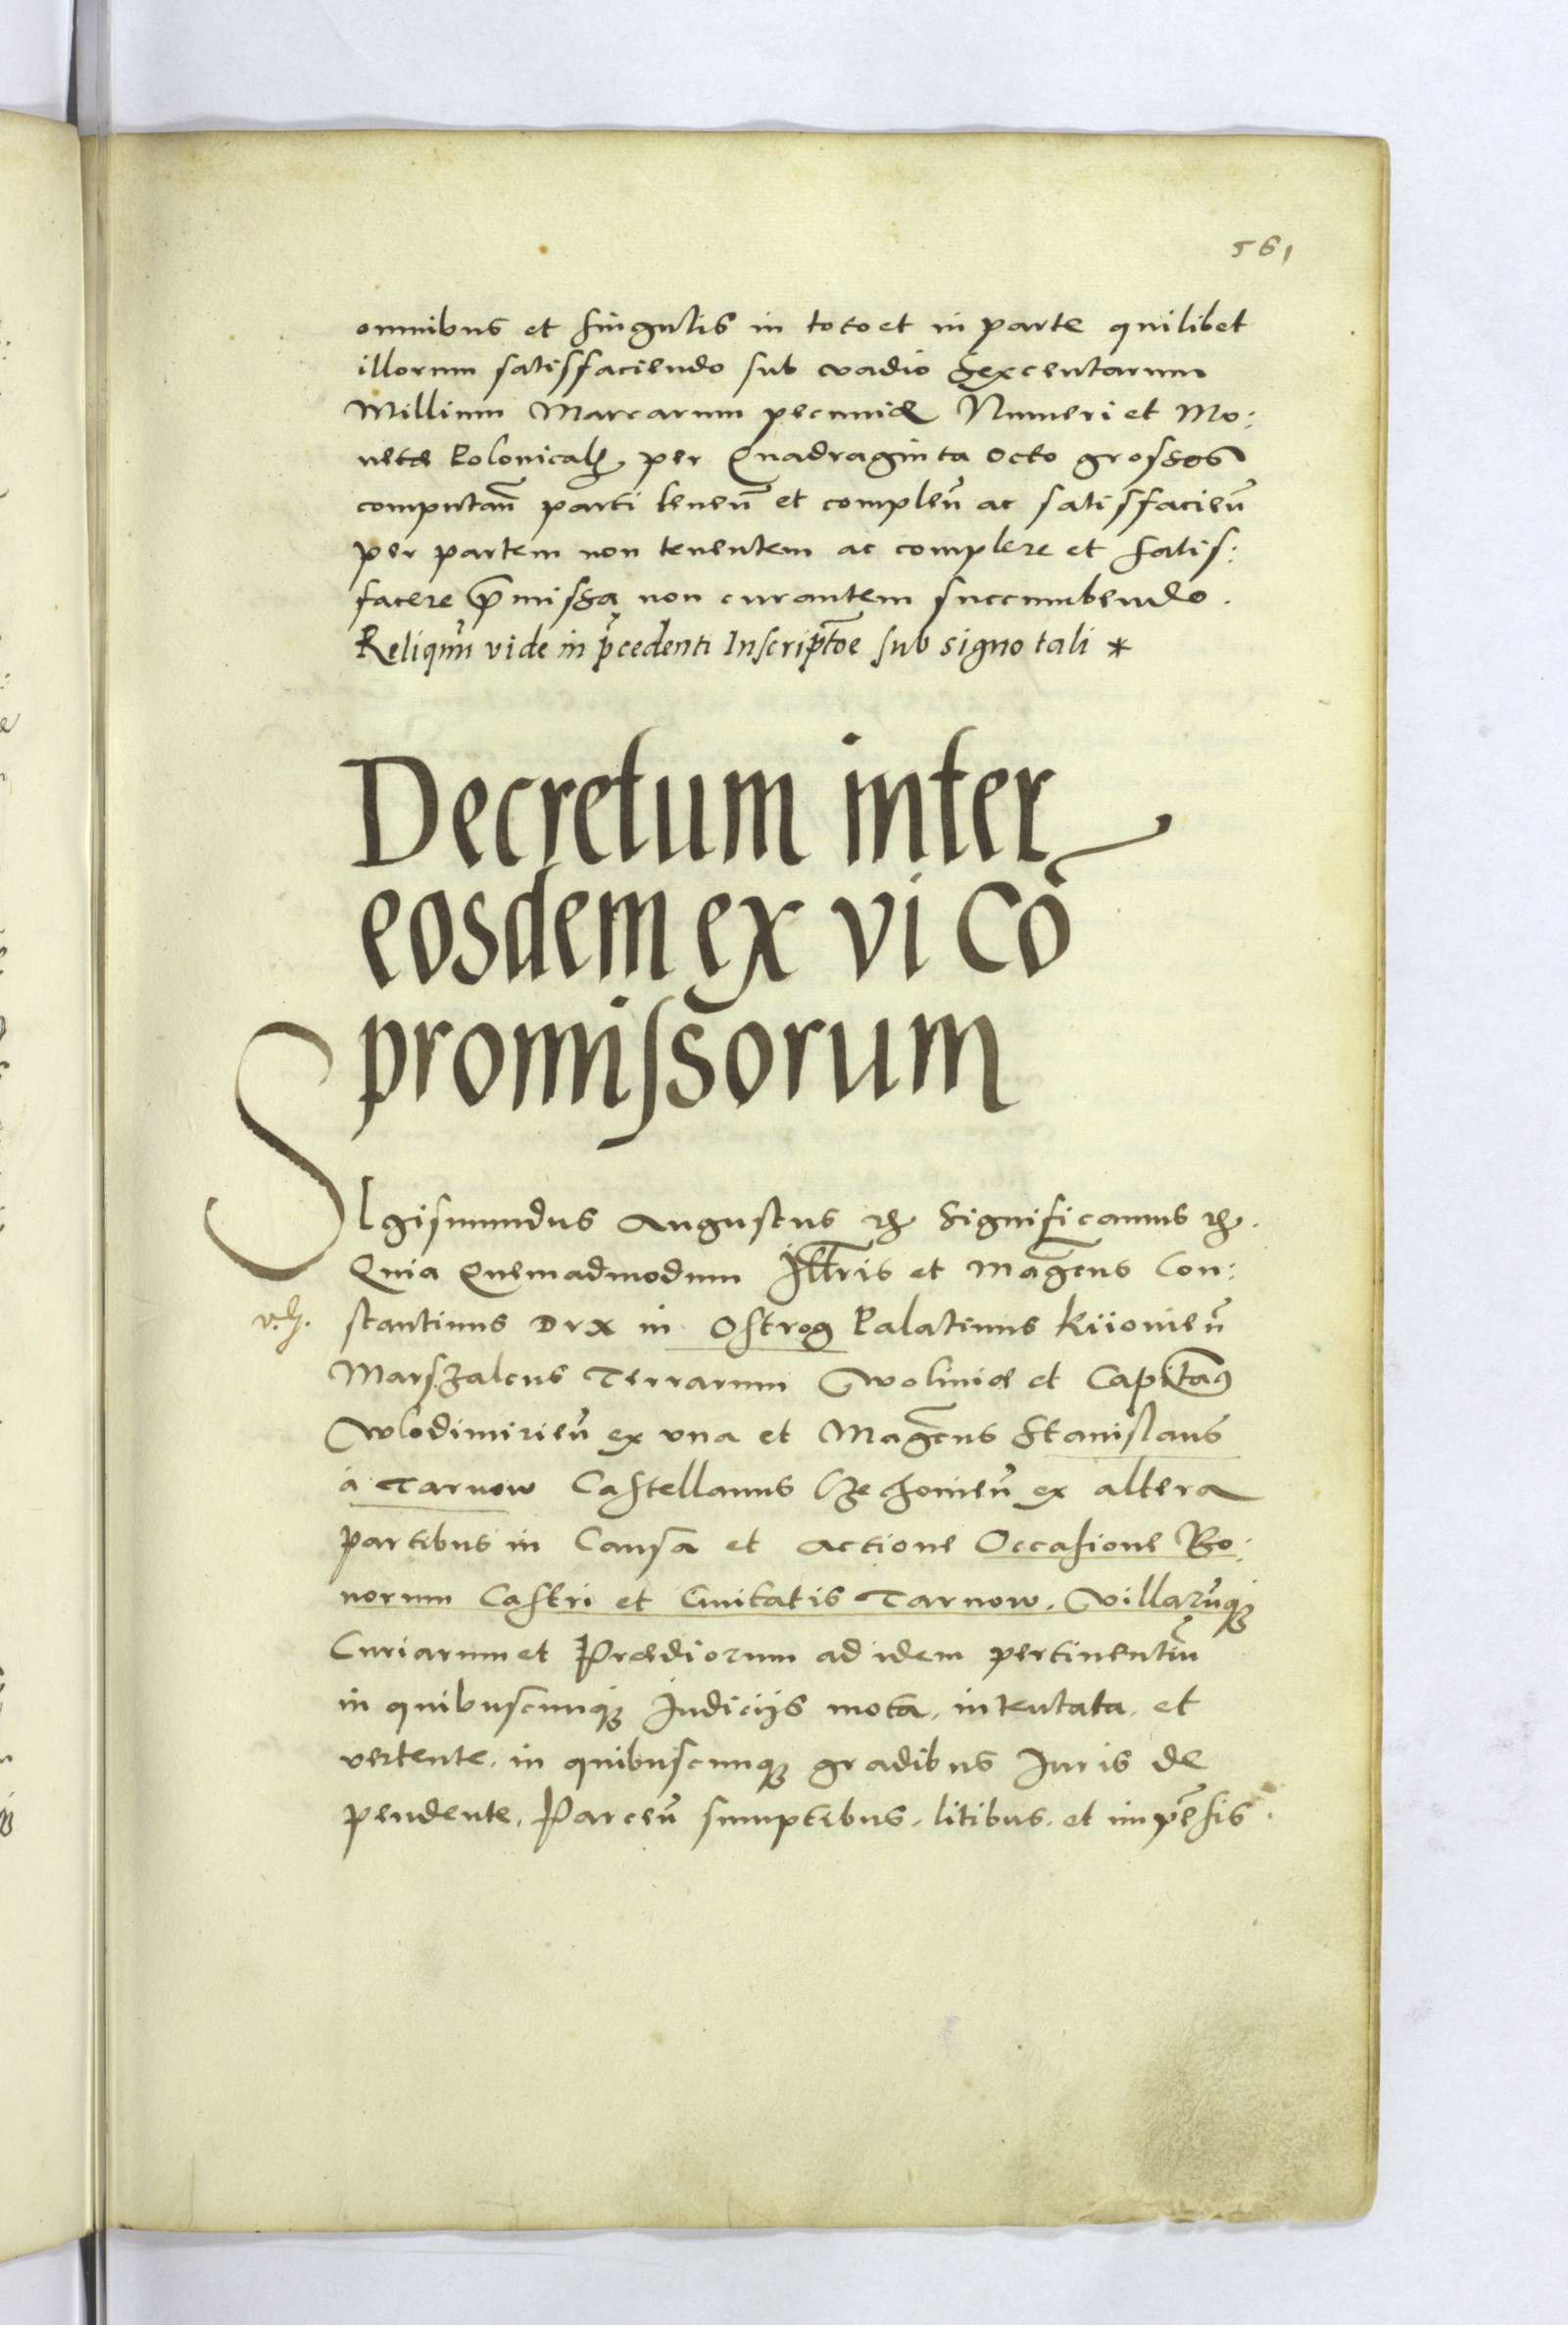 561
omnibus et singulis in toto et in parte quilibet
illorum satisfaciendo sub vadio Sexcentarum
Millium Marcarum pecuniæ Numeri et Mo:
netæ Polonicalꝭ, per Quadraginta octo grossos
computañ parti teneñ et compleñ ac satisfacieñ
per partem non tenentem ac complere et satis:
facere p̃missa non curantem succumbendo.
Reliquũ vide in p̃cedenti Inscriptõe sub signo tali *
Decretum inter
eosdem ex vi Cõ
promissorum
SIgismundus Augustus etc Significamus etc.
Quia Quemadmodum Ill̃tris et Mag̃cus Con:
stantinus Dux in Ostrog Palatinus Kiiovieñ
Marszalcus Terrarum Woliniæ et Capitãꝰ
Wlodimirieñ ex una et Mag̃cus Stanislaus
à Tarnow Castellanus Czechovieñ ex altera
partibus in Causa et actione Occasione Bo:
norum Castri et Civitatis Tarnow, Villarũqꝫ
Curiarum et Prædiorum ad idem pertinentiũ
in quibuscunqꝫ Iudicijs mota, intentata, et
vertente, in quibuscunqꝫ gradibus Iuris de
pendente, Parceñ sumptibus, litibus, et impẽsis